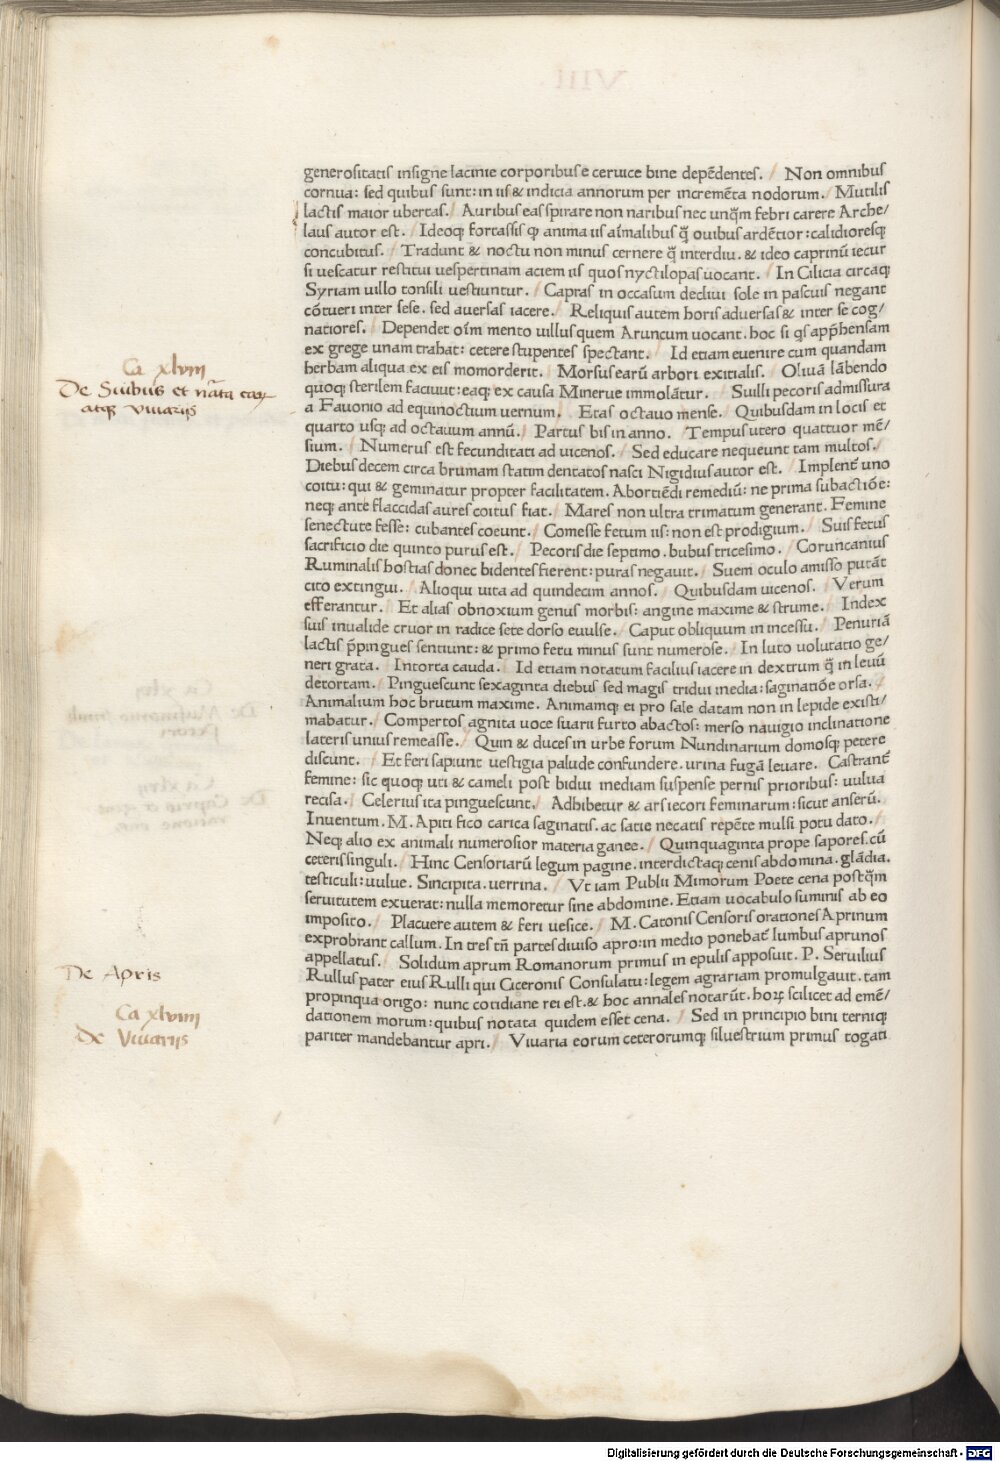 generositatis insigne lacinie corporibus e ceruice bine depēdentes. / Non omnibus
cornua: sed quibus sunt: in iis & indicia annorum per incremēta nodorum. / Mutilis
lactis maior ubertas. / Auribus eas spirare non naribus nec unq̄m febri carere Arche/
laus autor est. / Ideoq; fortassis ꝙ anima iis aīmalibus q̄ ouibus ardētior: calidioresq;
concubitus. / Tradunt & noctu non minus cernere q̄ interdiu. & ideo caprinū iecur
si uescatur restitui uespertinam aciem iis quos nyctilopas uocant. / In Cilicia circaq;
Syriam uillo tonsili uestiuntur. / Capras in occasum decliui sole in pascuis negant
cōtueri inter sese. sed auersas iacere. / Reliquis autem horis aduersas & inter se cog/
natiores. / Dependet oīm mento uillus quem Aruncum uocant. hoc si q̄s app̄hensam
ex grege unam trahat: cetere stupentes spectant. / Id etiam euenire cum quandam
herbam aliqua ex eis momorderit. / Morsus earū arbori exitialis. / Oliuā lābendo
Ca xlviij
De Suibus et natura eorum
atq; viuarijs
quoq; sterilem faciuut: eaq; ex causa Minerue immolātur. / Suilli pecoris admissura
a Fauonio ad equinoctium uernum. / Etas octauo mense. / Quibusdam in locis et
quarto usq; ad octauum annū. / Partus bis in anno. / Tempus utero quattuor mē/
sium. / Numerus est fecunditati ad uicenos. / Sed educare nequeunt tam multos. /
Diebus decem circa brumam statim dentatos nasci Nigidius autor est. / Implent̄ uno
coitu: qui & geminatur propter facilitatem. Abortiēdi remediū: ne prima subactiōe:
neq; ante flaccidas aures coitus fiat. / Mares non ultra trimatum generant. Femine
senectute fesse: cubantes coeunt. / Comesse fetum iis: non est prodigium. / Suis fetus
sacrificio die quinto purus est. / Pecoris die septimo. bubus tricesimo. / Coruncanius
Ruminalis hostias donec bidentes fierent: puras negauit. / Suem oculo amisso putāt
cito extingui. / Alioqui uita ad quindecim annos. / Quibusdam uicenos. / Verum
efferantur. / Et alias obnoxium genus morbis: angine maxime & strume. / Index
suis inualide cruor in radice sete dorso euulse. / Caput obliquum in incessu. / Penuriā
lactis p̄pingues sentiunt: & primo fetu minus sunt numerose. / In luto uolutatio ge/
neri grata. / Intorta cauda. / Id etiam notatum facilius iacere in dextrum q̄ in leuū
detortam. / Pinguescunt sexaginta diebus sed magis tridui inedia: saginatiōe orsa. /
Animalium hoc brutum maxime. Animamq; ei pro sale datam non in lepide existi/
mabatur. / Compertos agnita uoce suarii furto abactos: merso nauigio inclinatione
lateris unius remeasse. / Quin & duces in urbe forum Nundinarium domosq; petere
discunt. / Et feri sapiunt uestigia palude confundere. urina fugā leuare. Castrant̄
femine: sic quoq; uti & cameli post bidui inediam suspense pernis prioribus: uulua
recisa. / Celerius ita pinguescunt. / Adhibetur & ars iecori feminarum: sicut anserū.
Inuentum. M. Apiti fico carica saginatis. ac satie necatis repēte mulsi potu dato. /
Neq; alio ex animali numerosior materia ganee. / Quinquaginta prope sapores. cū
ceteris singuli. / Hinc Censoriarū legum pagine. interdictaq; cenis abdomina. glādia.
testiculi: uulue. Sincipita. uerrina. / Vt iam Publii Mimorum Poete cena postq̄m
seruitutem exuerat: nulla memoretur sine abdomine. Etiam uocabulo suminis ab eo
imposito. / Placuere autem & feri uesice. / M. Catonis Censoris orationes Aprinum
exprobrant callum. In tres tn̄ partes diuiso apro: in medio ponebat̄ lumbus aprunos
De Apris
appellatus. / Solidum aprum Romanorum primus in epulis apposuit. P. Seruilius
Rullus pater eius Rulli qui Ciceronis Consulatu: legem agrariam promulgauit. tam
propinqua origo: nunc cotidiane rei est. & hoc annales notarūt. hoꝝ scilicet ad emē/
Ca xlviiij
De Viuarijs
dationem morum: quibus notata quidem esset cena. / Sed in principio bini terniq;
pariter mandebantur apri. / Viuaria eorum ceterorumq; siluestrium primus togati
Digitalisierung gefördert durch die Deutsche Forschungsgemeinschaft - DFG